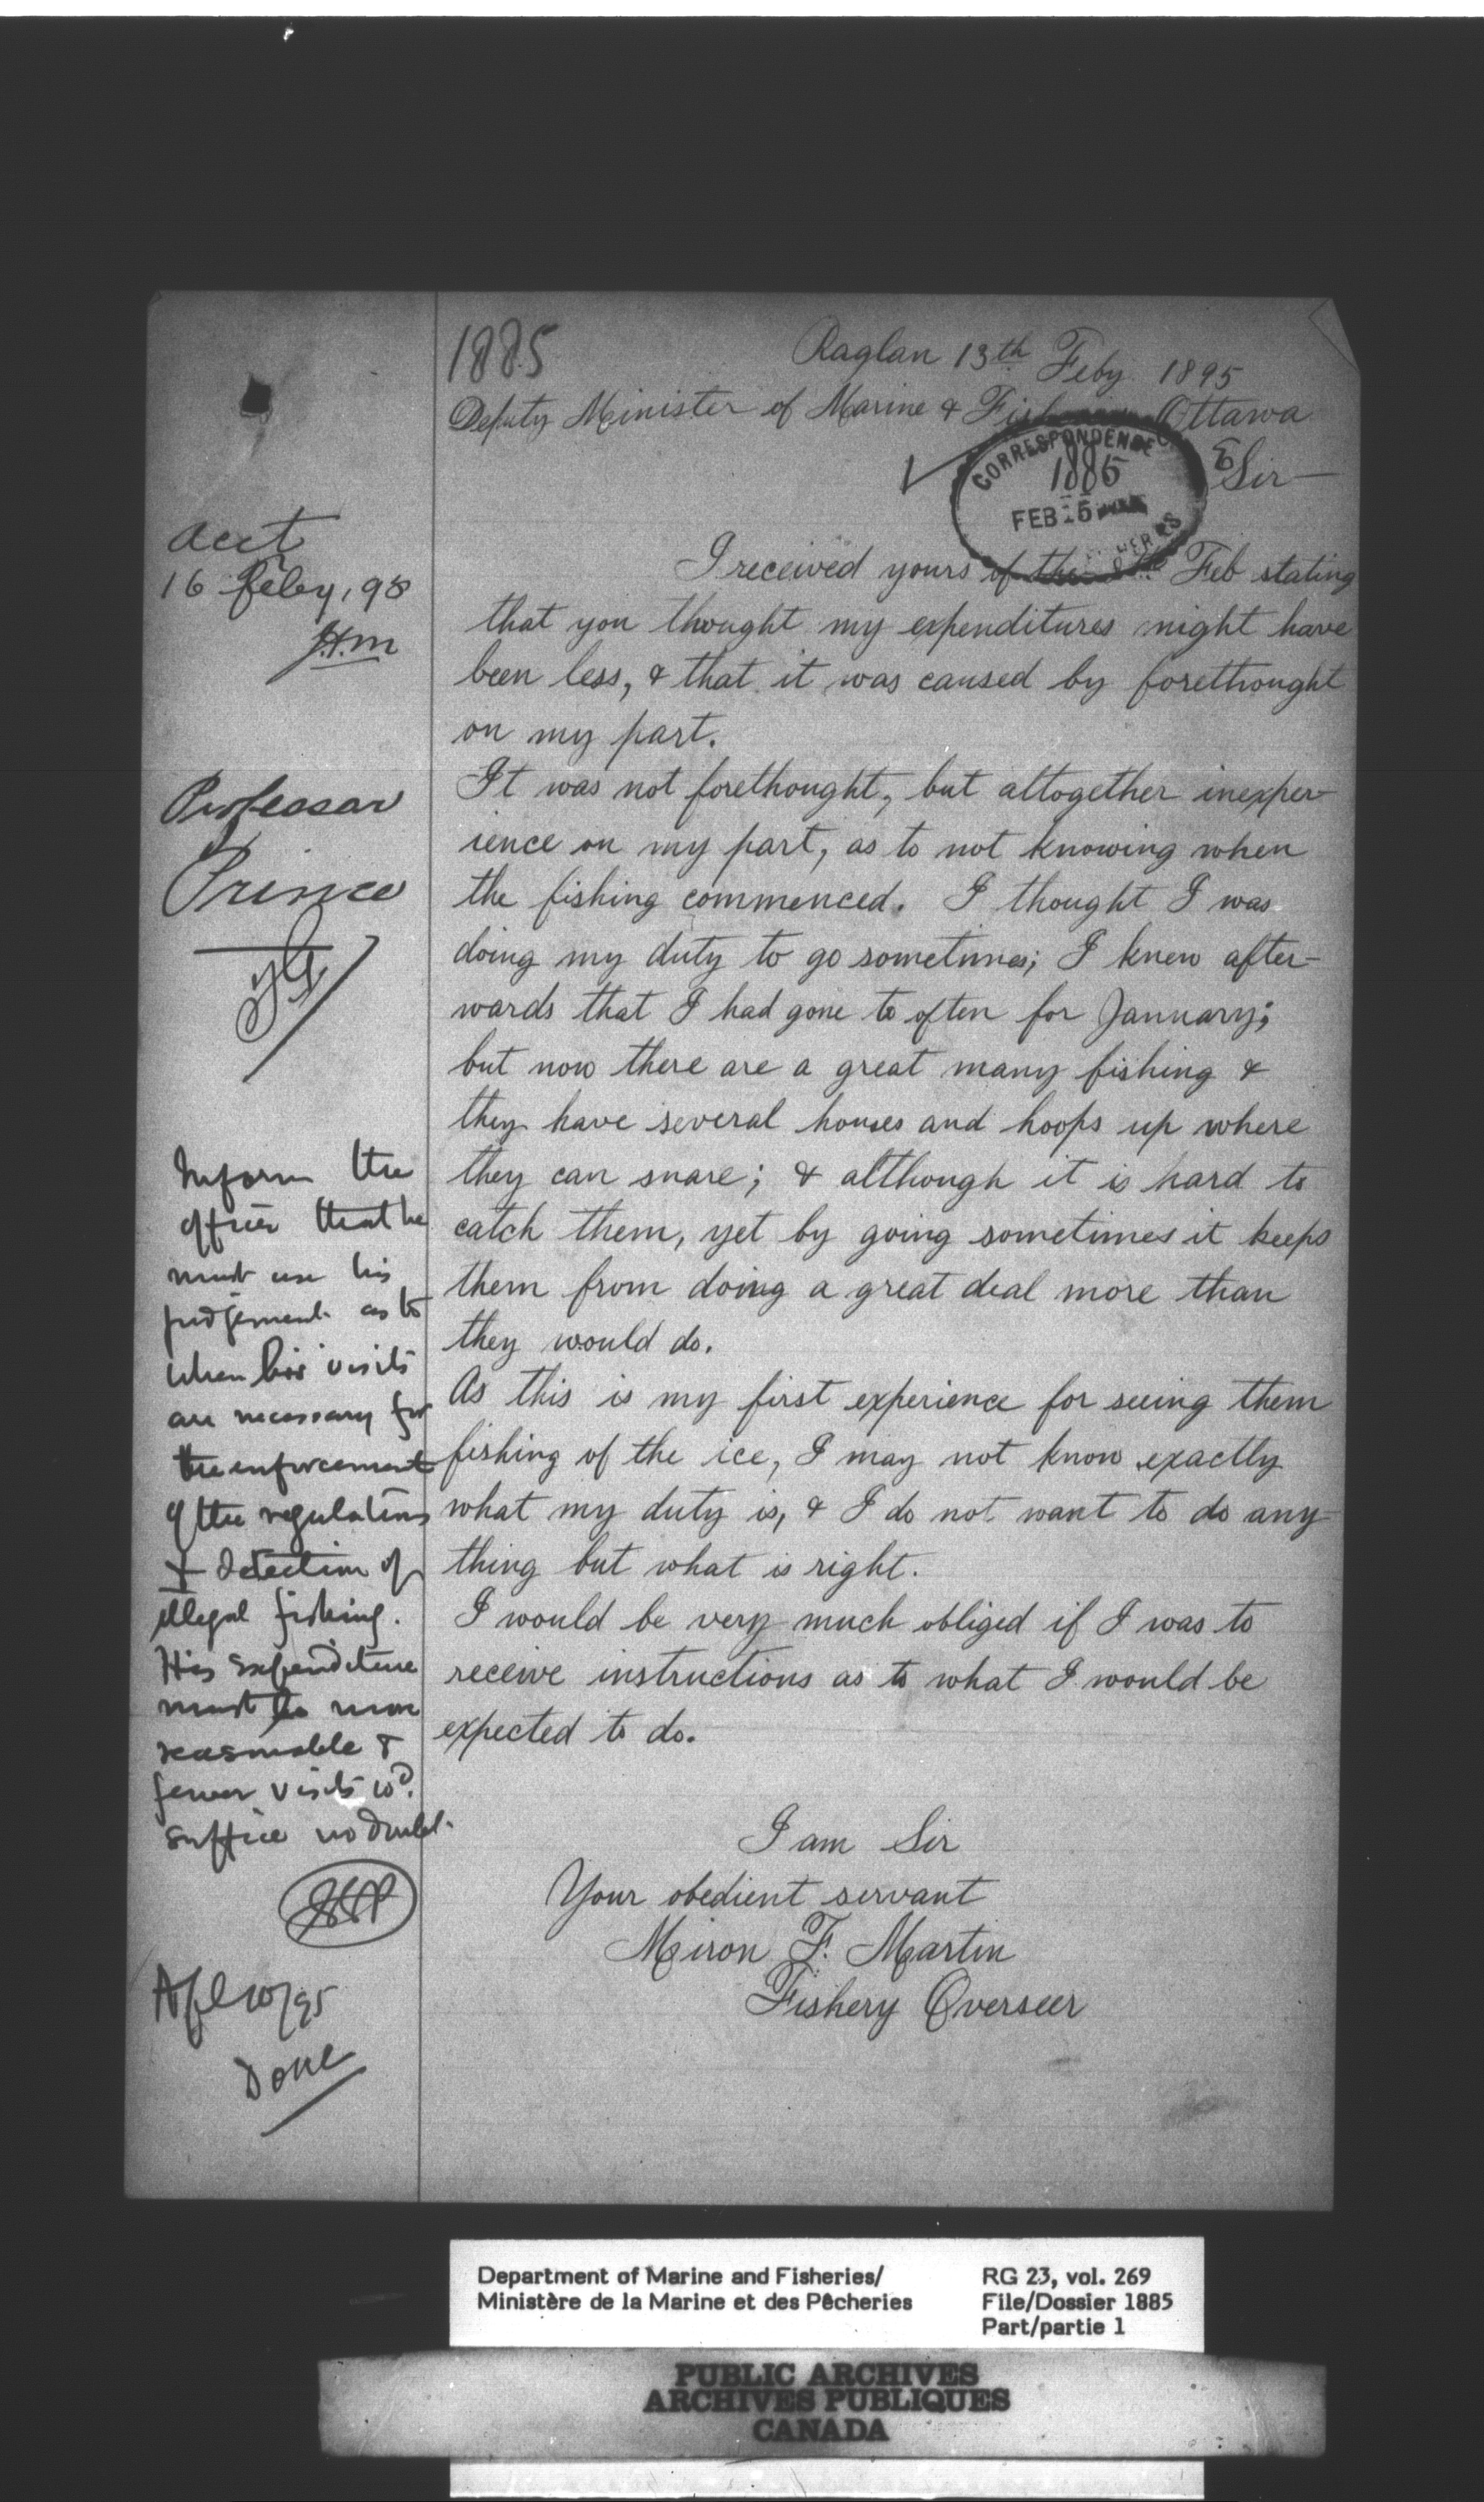 1885
Raglan 13th Feby 1895
Deputy Minister of Marine & Fisheries Ottawa
Sir
CORRESPONDENCE
1885
FEB 15
I received yours of the 8th Feb stating
that you thought my expenditures might have
been less, & that it was caused by forethought
on my part.
It was not forethought, but altogether inexper-
ience on my part, as to not knowing when
the fishing commenced. I thought I was
doing my duty to go sometimes; I knew after-
wards that I had gone to often for January;
but now there are a great many fishing &
they have several houses and hoops up where
they can snare; & although it is hard to
catch them, yet by going sometimes it keeps
them from doing a great deal more than
they would do.
As this is my first experience for seeing them
fishing of the ice, I may not know exactly
what my duty is, & I do not want to do any-
thing but what is right.
I would be very much obliged if I was to
receive instructions as to what I would be
expected to do.
I am Sir
Your obedient servant
Miron F. Martin
Fishery Overseer
16 Feby, 95
Professor
Prince
Inform the
officer that he
must use his
judgement as to
when his visits
are necessary for
the enforcement
of the regulations
& detection of
illegal fishing.
His expenditure
must be more
reasonable &
fewer visits wd.
suffice no doubt.
EEP
Done
Department of Marine and Fisheries/
Ministère de la Marine et des Pêcheries
RG 23, vol. 269
File/Dossier 1885
Part/partie 1
PUBLIC ARCHIVES
ARCHIVES PUBLIQUES
CANADA